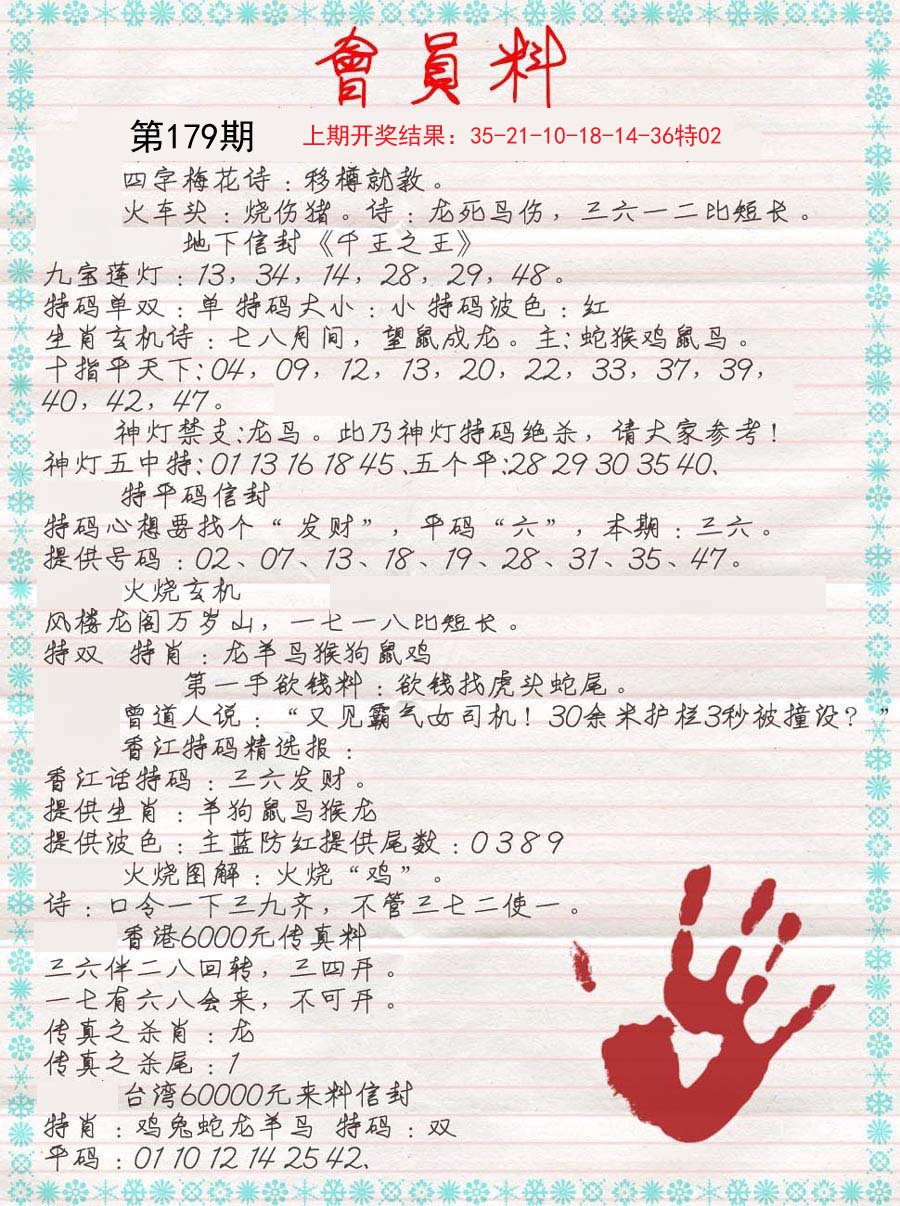 會員料
第179期 上期开奖结果：35-21-10-18-14-36特02
四字梅花诗：移樽就教。
火车头：烧伤猪。诗：龙死鸟伤，三六一二比短长。
地下信封《千王之王》
九宝莲灯：13，34，14，28，29，48。
特码单双：单 特码大小：小 特码波色：红
生肖玄机诗：七八月间，望鼠成龙。主：蛇猴鸡鼠鸟。
十指平天下：04，09，12，13，20，22，33，37，39，
40，42，47。
神灯禁支：龙鸟。此乃神灯特码绝杀，请大家参考！
神灯五中特：01 13 16 18 45、五个平：28 29 30 35 40、
特平码信封
特码心想要找个“发财”，平码“六”，本期：三六。
提供号码：02、07、13、18、19、28、31、35、47。
火烧玄机
风楼龙阁万岁山，一七一八比短长。
特双 特肖：龙羊鸟猴狗鼠鸡
第一手欲钱料：欲钱找虎头蛇尾。
曾道人说：“又见霸气女司机！30余米护栏3秒被撞没？”
香江特码精选报：
香江话特码：三六发财。
提供生肖：羊狗鼠鸟猴龙
提供波色：主蓝防红提供尾数：0 3 8 9
火烧图解：火烧“鸡”。
诗：口令一下三九齐，不管三七二使一。
香港6000元传真料
三六伴二八回转，三四开。
一七有六八会来，不可开。
传真之杀肖：龙
传真之杀尾：1
台湾60000元来料信封
特肖：鸡兔蛇龙羊鸟 特码：双
平码：01 10 12 14 25 42、